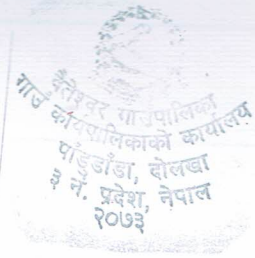 वैतेश्वर गाउँपालिका
गाउँ कार्यपालिकाको कार्यालय
पांडुडाँडा, दोलखा
३ नं. प्रदेश, नेपाल
२०७३